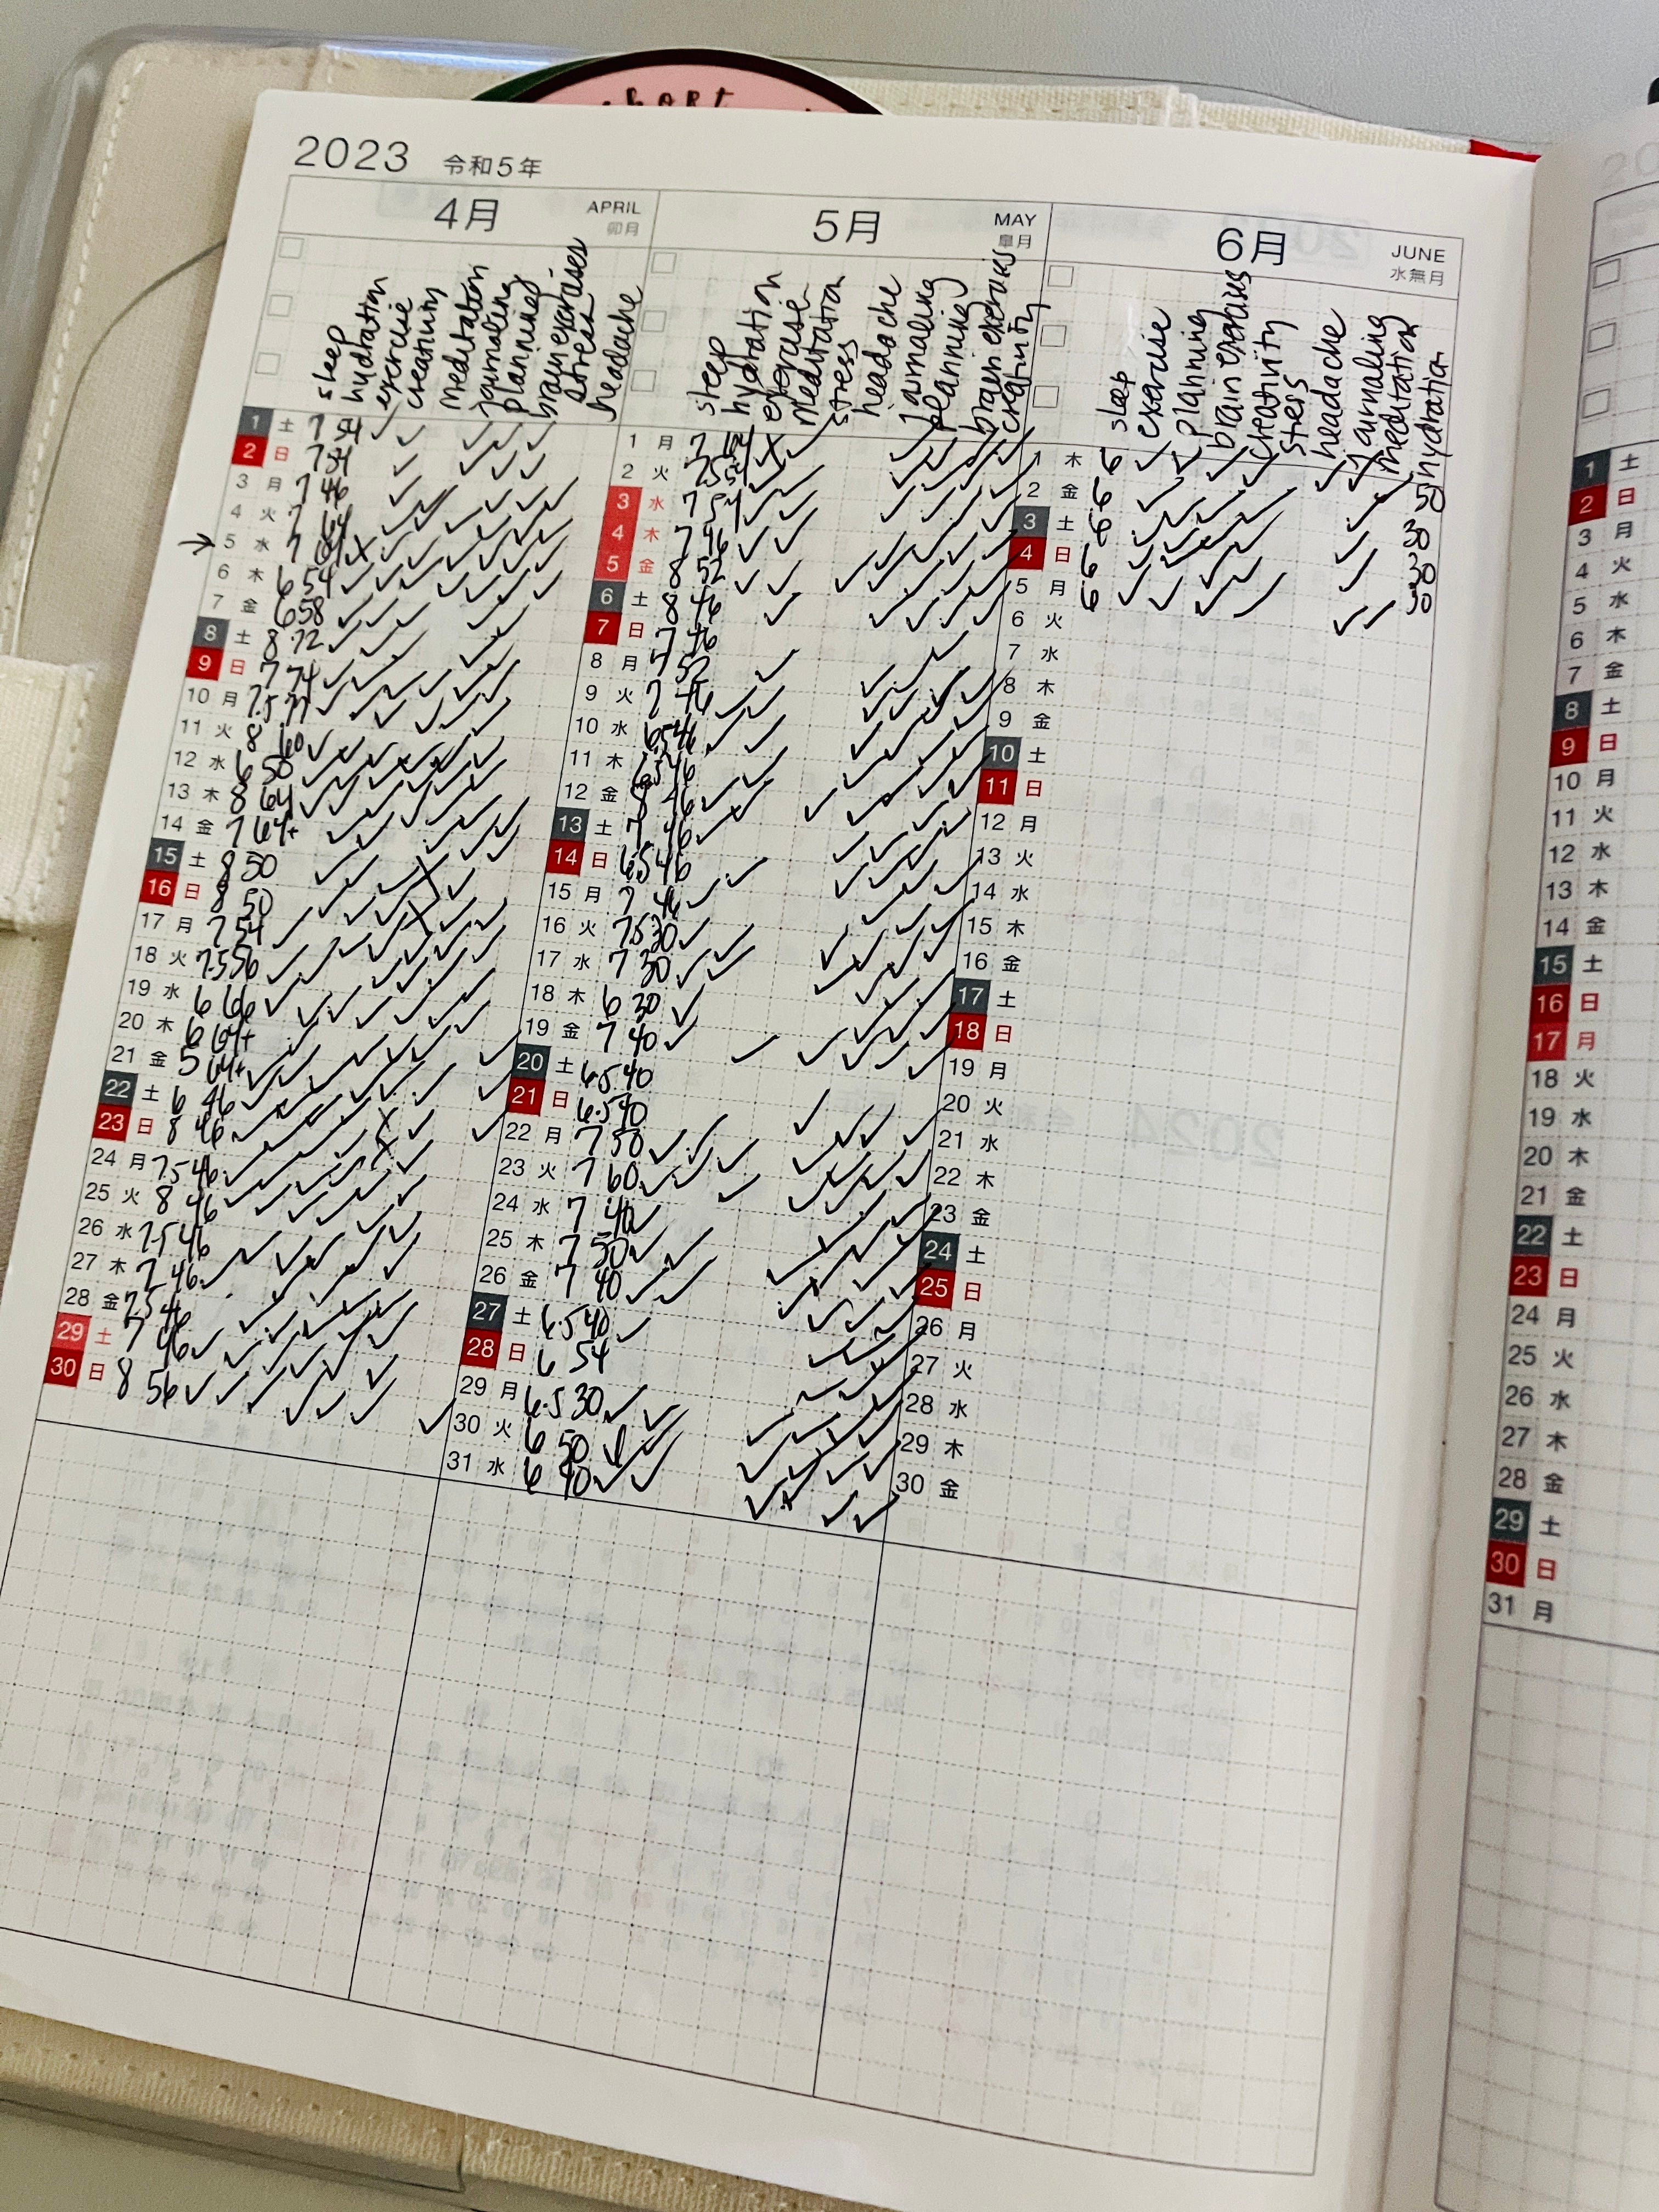 short
2023 令和5年
4月 APRIL 卯月
sleep
hydration
exercise
creativity
meditation
journaling
planning
brain exercises
stress
headache
1 土 7 54 ✓ ✓ ✓ ✓ ✓
2 日 7 54
3 月 7 46
4 火 7 64
5 水 7
6 木 6 54
7 金 6 58
8 土 8 72
9 日 7 74
10 月 7.5 77
11 火 8 60
12 水 6 50
13 木 8 64
14 金 7 64+
15 土 8 50
16 日 8 50
17 月 7 54
18 火 7.5 56
19 水 6 66
20 木 6 64+
21 金 5 64+
22 土 6 46
23 日 8 46
24 月 7.5 46
25 火 8 46
26 水 7.5 46
27 木 7 46
28 金 7.5 46
29 土 7 46
30 日 8 56
5月 MAY 皐月
sleep
hydration
exercise
meditation
stress
headache
journaling
planning
brain exercises
creativity
1 月 7
2 火 7.5 54
3 水 7 54
4 木 7 46
5 金 8 52
6 土 8 46
7 日 7 46
8 月 7 52
9 火 7 46
10 水 6.5 46
11 木 6.5 46
12 金 8 46
13 土 7 46
14 日 6.5 46
15 月 7 46
16 火 7.5 30
17 水 7 30
18 木 6 30
19 金 7 40
20 土 6.5 40
21 日 6.5 40
22 月 7 50
23 火 7 60
24 水 7 40
25 木 7 50
26 金 7 40
27 土 6.5 40
28 日 6 54
29 月 6.5 30
30 火 6 50
31 水 6 40
6月 JUNE 水無月
sleep
exercise
planning
brain exercises
creativity
stress
headache
journaling
meditation
hydration
1 木 6 50
2 金 6 30
3 土 6 30
4 日 6 30
5 月 6
6 火
7 水
8 木
9 金
10 土
11 日
12 月
13 火
14 水
15 木
16 金
17 土
18 日
19 月
20 火
21 水
22 木
23 金
24 土
25 日
26 月
27 火
28 水
29 木
30 金
20
1 土
2 日
3 月
4 火
5 水
6 木
7 金
8 土
9 日
10 月
11 火
12 水
13 木
14 金
15 土
16 日
17 月
18 火
19 水
20 木
21 金
22 土
23 日
24 月
25 火
26 水
27 木
28 金
29 土
30 日
31 月